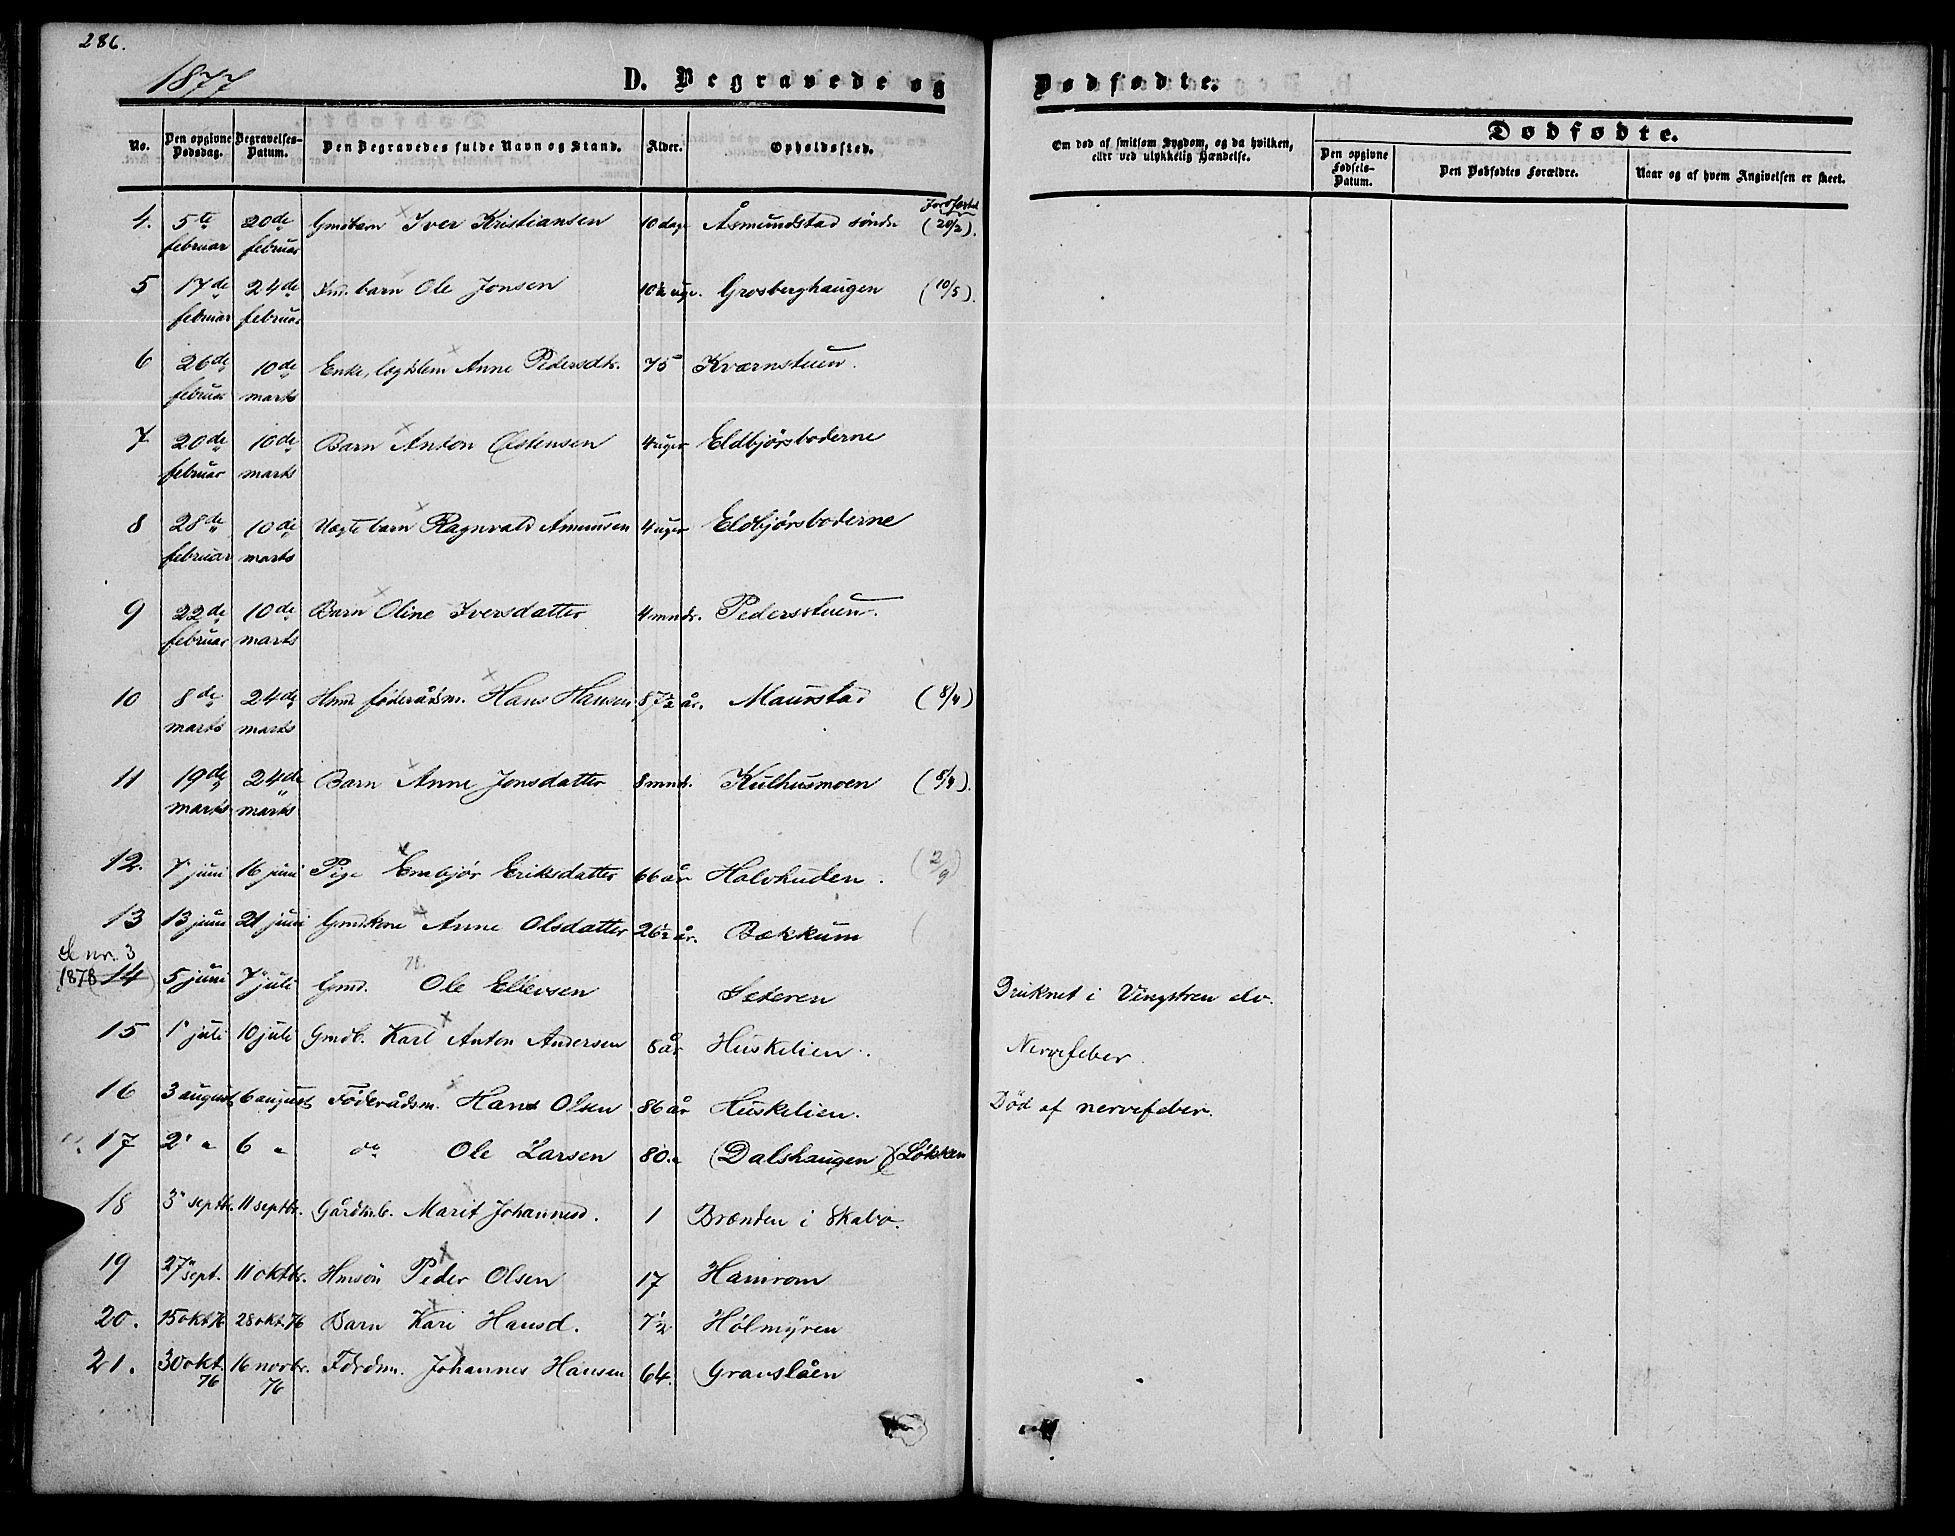 286.
1877
D. Begravede og
Dødfødte.
No.
Den opgivne Dødsdag.
Begravelses-Datum.
Den Begravedes fulde Navn og Stand.
Alder.
Opholdssted.
Om død af smitsom Sygdom, og da hvilken, eller ved ulykkelig Hændelse.
Dødfødte.
Den opgivne Fødsels-Datum.
Den Dødfødtes Forældre.
Naar og af hvem Angivelsen er skeet.
4. 5te februar 20de februar Gmdbarn Iver Kristiansen 10 dage Åsmundstad søndre (20/2).
5 17de februar 24de februar Ind. barn Ole Jonsen 10½ uge. Grosberghaugen (10/5).
6 26de februar 10de marts Enke, lægdslem Anne Pedersdtr. 75 Kværnstuen.
7 20de februar 10de marts Barn Anton Østensen 4 uger Eldbjørsboderne
8 28de februar 10de marts Uægte barn Ragnvald Amunsen 4 uger Eldbjørsboderne
9 22de februar 10de marts Barn Oline Iversdatter 4 mndr. Pedersstuen.
10 8de marts 24de marts Hmd føderådsm. Hans Hansen 87½ år. Maurstad (8/4)
11 19de marts 24de marts Barn Anne Jonsdatter 8 mnd. Kulhusmoen (8/4).
12. 7 juni 16 juni Pige Embjør Eriksdatter 66 år Halvkuden. (2/9)
13 13 juni 21 juni Gmdkone Anne Olsdatter 26½ år. Bækkum
Se nr. 3
1878 14 5 juni 7 juli Gmd. Ole Ellevsen Seteren Druknet i Vingstren elv.
15 1 juli 10 juli Gmdb. Karl Anton Andersen 8 år Huskelien. Nervefeber.
16 3 august 6 august Føderådsm. Hans Olsen 86 år Huskelien. Død af nervefeber.
17 2 " 6 " do Ole Larsen 80 " (Dalshaugen) Løkken
18 3 septbr. 11 septbr. Gårdmb. Marit Johannesd. 1 Brænden i Skabo.
19 27 sept. 11 oktbr. Hmsön Peder Olsen 17 Hamrom
20. 15 okt 76 28 okt 76 Barn Kari Hansd. 7½ Hølmyren
21. 30 okt. 76 16 novbr. 76 Fdrdm. Johannes Hansen 64. Granslåen